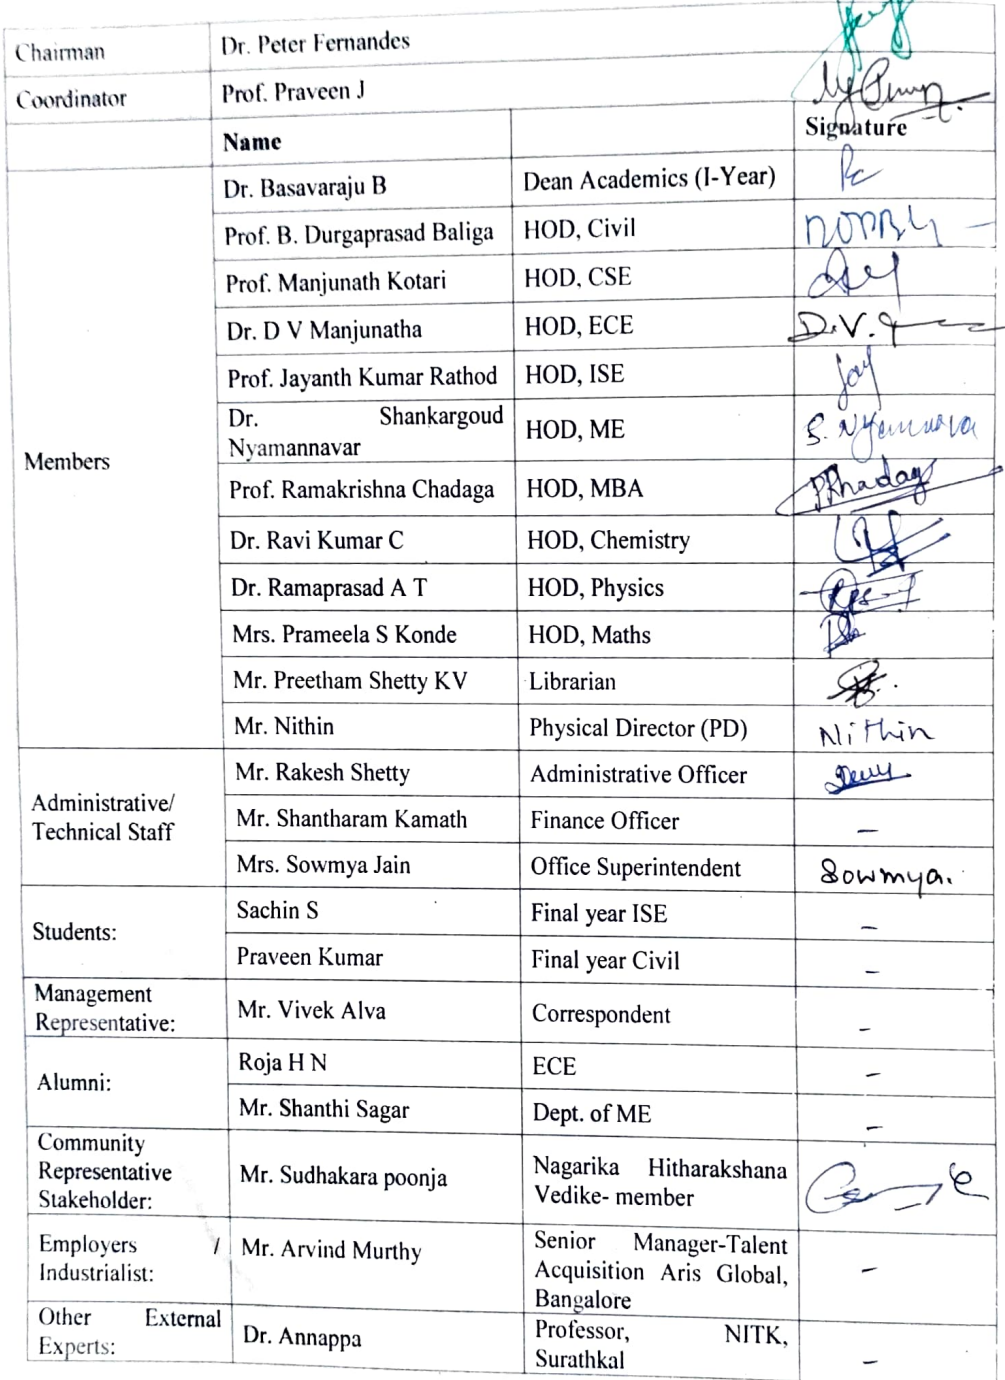 Chairman Dr. Peter Fernandes
Coordinator Prof. Praveen J
Name Signature
Members
Dr. Basavaraju B Dean Academics (I-Year)
Prof. B. Durgaprasad Baliga HOD, Civil
Prof. Manjunath Kotari HOD, CSE
Dr. D V Manjunatha HOD, ECE D.V.
Prof. Jayanth Kumar Rathod HOD, ISE Jay
Dr. Shankargoud
Nyamannavar HOD, ME
Prof. Ramakrishna Chadaga HOD, MBA
Dr. Ravi Kumar C HOD, Chemistry
Dr. Ramaprasad A T HOD, Physics
Mrs. Prameela S Konde HOD, Maths
Mr. Preetham Shetty KV Librarian
Mr. Nithin Physical Director (PD) Nithin
Administrative/
Technical Staff
Mr. Rakesh Shetty Administrative Officer
Mr. Shantharam Kamath Finance Officer –
Mrs. Sowmya Jain Office Superintendent Sowmya.
Students:
Sachin S Final year ISE –
Praveen Kumar Final year Civil –
Management
Representative:
Mr. Vivek Alva Correspondent –
Alumni:
Roja H N ECE –
Mr. Shanthi Sagar Dept. of ME –
Community
Representative
Stakeholder:
Mr. Sudhakara poonja
Nagarika Hitharakshana
Vedike- member
Employers /
Industrialist:
Mr. Arvind Murthy
Senior Manager-Talent
Acquisition Aris Global,
Bangalore
–
Other External
Experts:
Dr. Annappa
Professor, NITK,
Surathkal
–